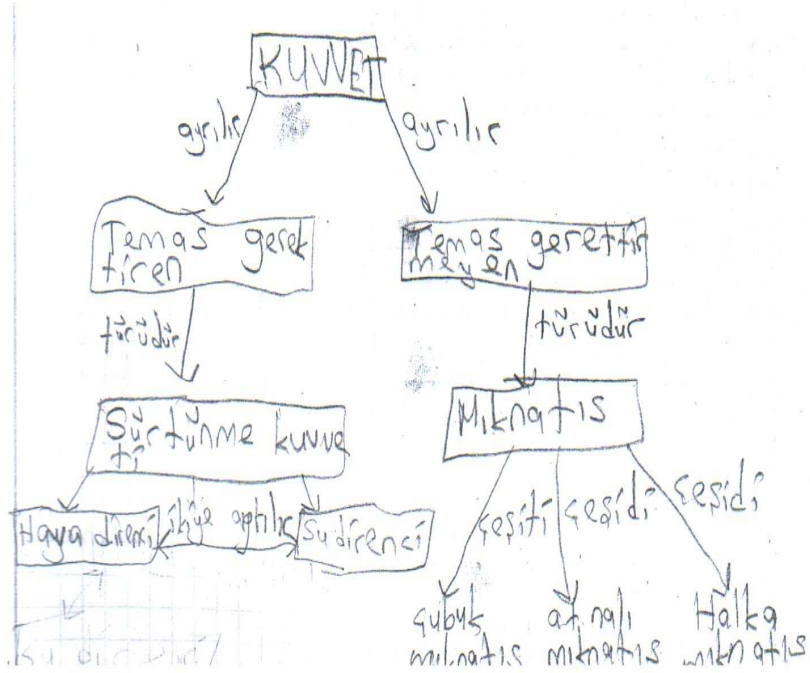 KUVVET
ayrılır
ayrılır
Temas gerek
tiren
Temas gerettir
meyen
türüdür
türüdür
Sürtünme kuvve
ti
Mıknatıs
Hava direnci
ikiye
Su direnci
çeşiti
çeşidi
çeşidi
çubuk
mıknatıs
at nalı
mıknatıs
Halka
mıknatıs